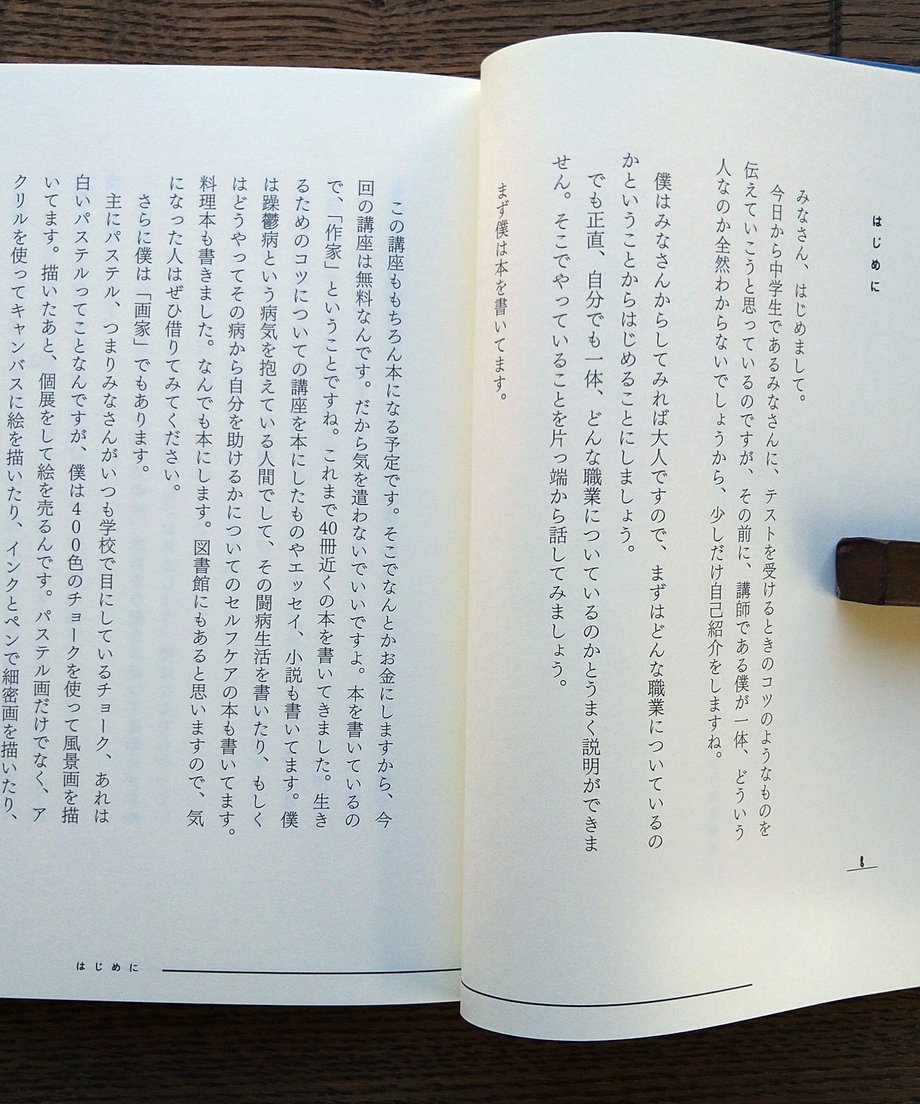 はじめに
みなさん、はじめまして。
今日から中学生であるみなさんに、テストを受けるときのコツのようなものを
伝えていこうと思っているのですが、その前に、講師である僕が一体、どういう
人なのか全然わからないでしょうから、少しだけ自己紹介をしますね。
僕はみなさんからしてみれば大人ですので、まずはどんな職業についているの
かということからはじめることにしましょう。
でも正直、自分でも一体、どんな職業についているのかとうまく説明ができま
せん。そこでやっていることを片っ端から話してみましょう。
まず僕は本を書いてます。
8
この講座ももちろん本になる予定です。そこでなんとかお金にしますから、今
回の講座は無料なんです。だから気を遣わないでいいですよ。本を書いているの
で、「作家」ということですね。これまで40冊近くの本を書いてきました。生き
るためのコツについての講座を本にしたものやエッセイ、小説も書いてます。僕
は躁鬱病という病気を抱えている人間でして、その闘病生活を書いたり、もしく
はどうやってその病から自分を助けるかについてのセルフケアの本も書いてます。
料理本も書きました。なんでも本にします。図書館にもあると思いますので、気
になった人はぜひ借りてみてください。
さらに僕は「画家」でもあります。
主にパステル、つまりみなさんがいつも学校で目にしているチョーク、あれは
白いパステルってことなんですが、僕は400色のチョークを使って風景画を描
いてます。描いたあと、個展をして絵を売るんです。パステル画だけでなく、ア
クリルを使ってキャンバスに絵を描いたり、インクとペンで細密画を描いたり、
はじめに